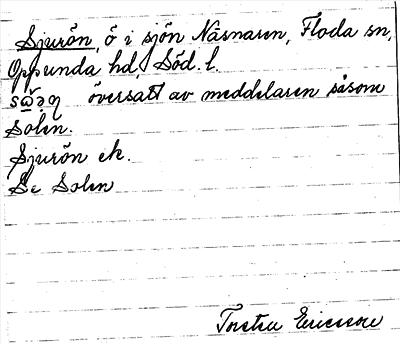 Sjurön, ö i sjön Näsnaren, Floda sn,
Oppunda hd, Söd. l.
översatt av meddelaren såsom
Solen.
Sjurön ek.
Se Solen
Torsten Ericsson